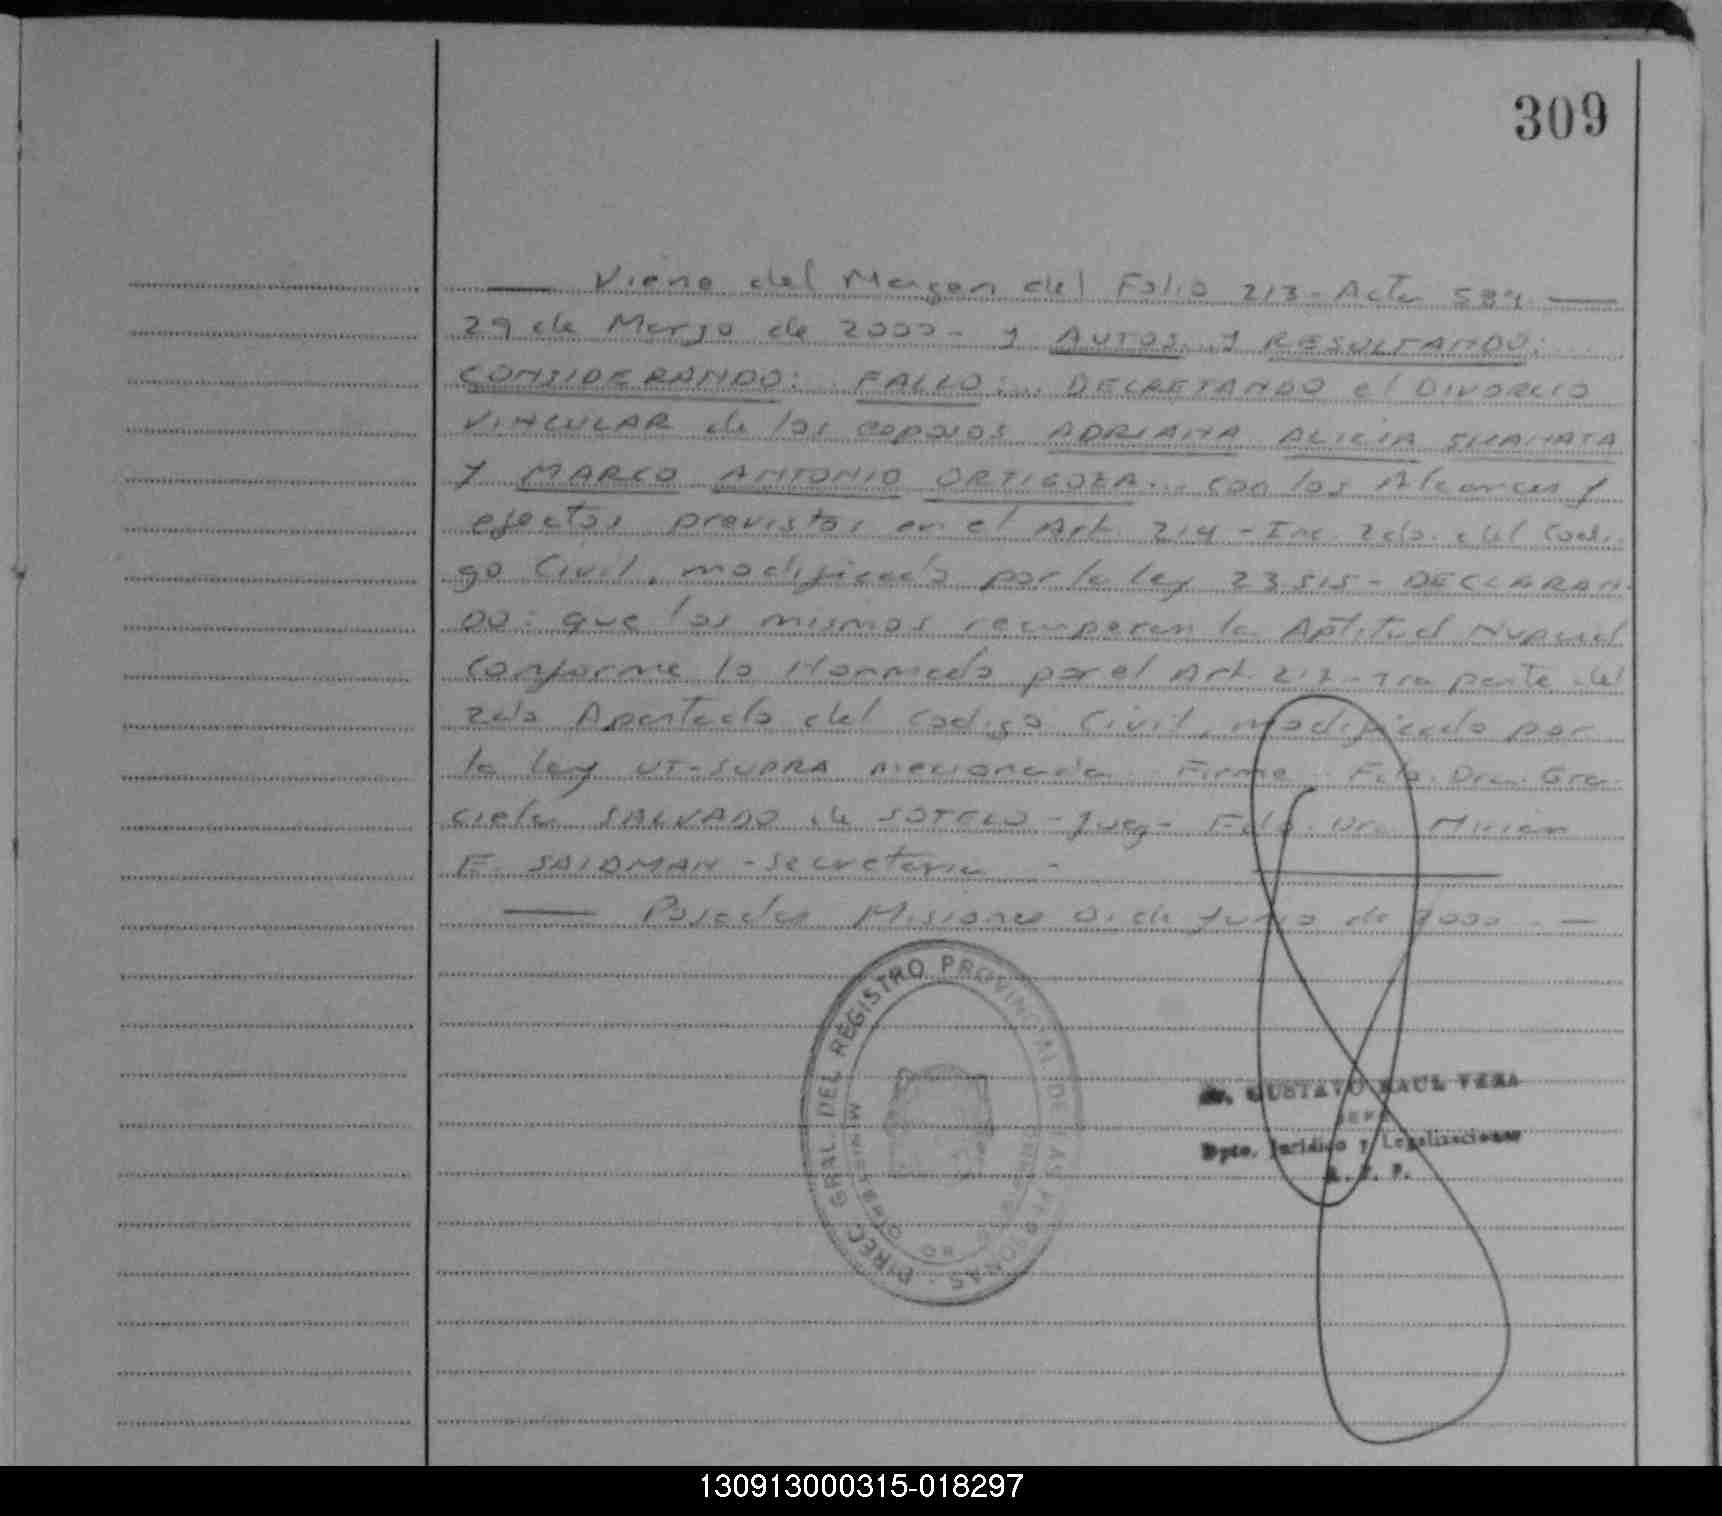 309
Viene del Margen del Folio 213 - Acta
29 de Marzo de 2000 - y AUTOS y RESULTANDO:
CONSIDERANDO: FALLO: DECRETANDO el DIVORCIO
VINCULAR de los esposos ADRIANA ALICIA
y MARCO ANTONIO ORTIGOZA... con los Alcances y
efectos previstos en el Art. 214 - Inc. 2do. del Codi-
go Civil, modificado por la ley 23.515 - DECLARAN-
DO: que los mismos recuperan la Aptitud Nupcial
conforme lo Normado por el Art. 217 - 1ra parte del
2do Apartado del Codigo Civil, modificado por
la ley UT-SUPRA mencionada. Firme. Fdo. Dra. Gra-
ciela SALVADO de SOTELO - Juez - Fdo. Dra. Mirian
E. SAIDMAN - Secretaria -
Posadas Misiones 01 de Junio de 2000. -
DIREC. GRAL. DEL REGISTRO PROVINCIAL DE LAS PERSONAS
GUSTAVO RAUL VERA
JEFE
Dpto. Jurídico y Legalizaciones
R. P. P.
130913000315-018297